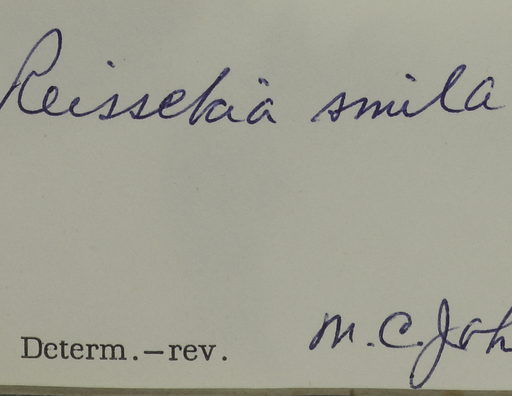 Reissekia smila
Determ.—rev. M.C. Joh